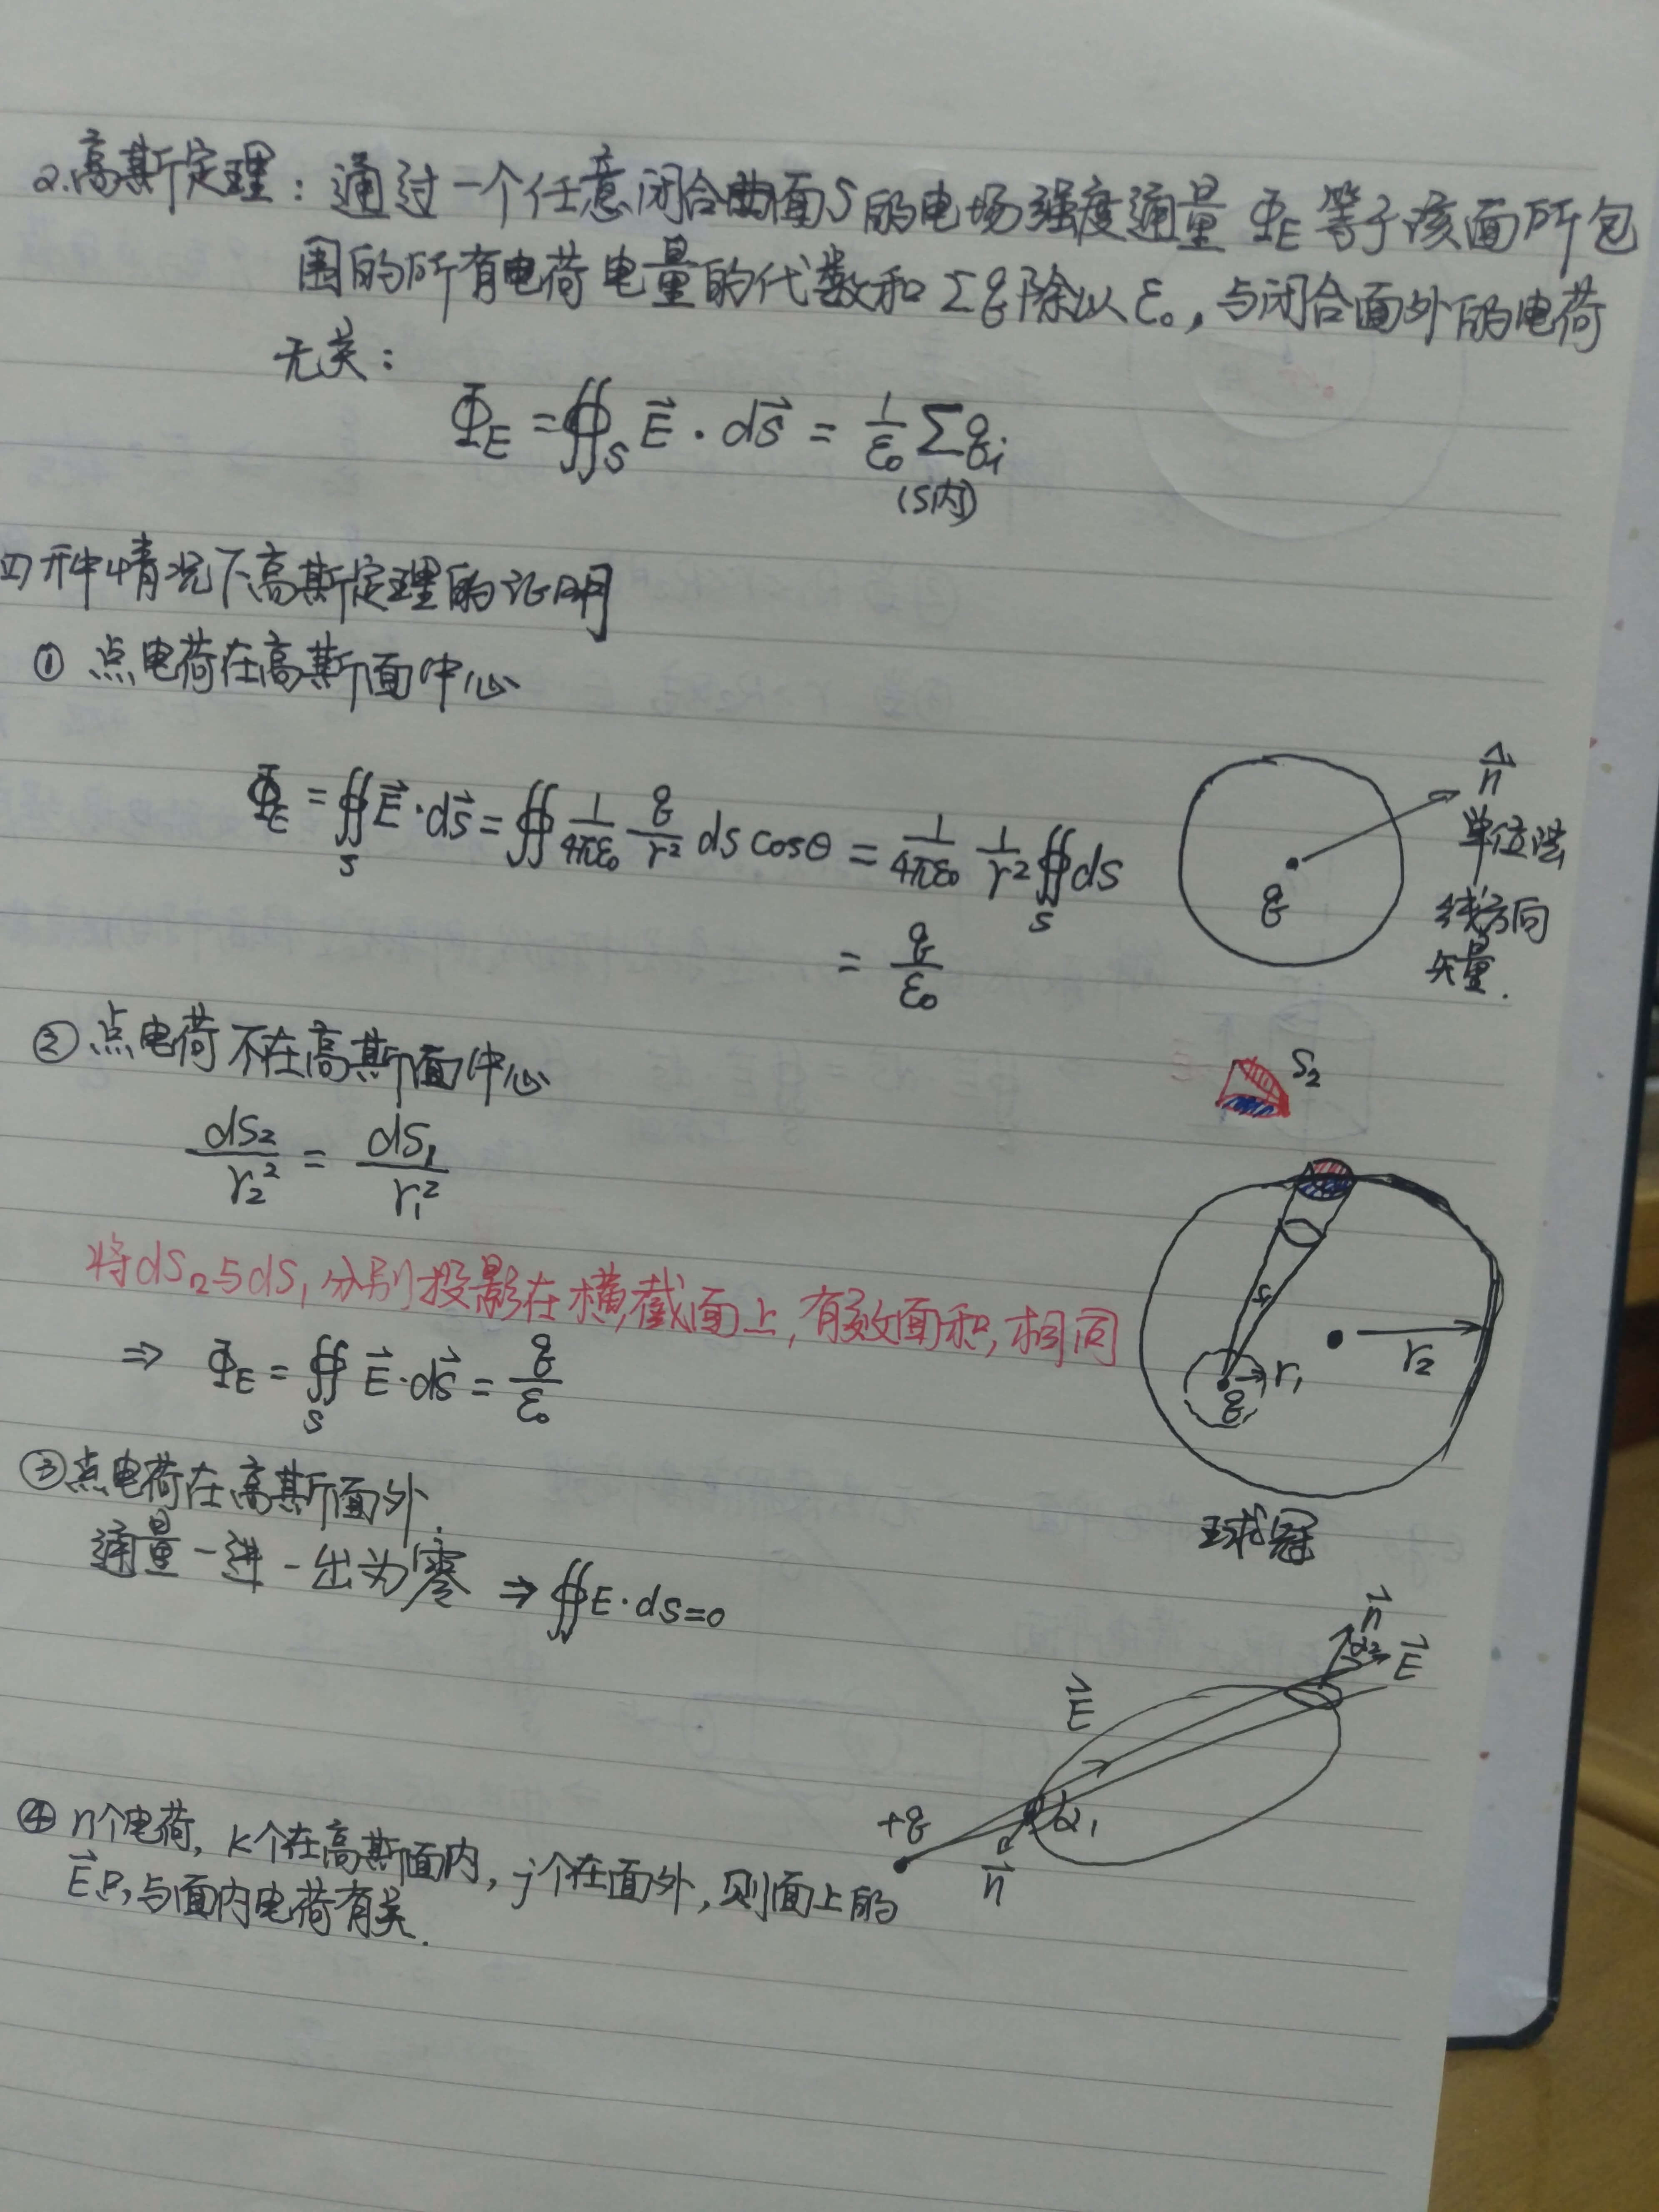 2.高斯定理：通过一个任意闭合曲面S的电场强度通量 Φ_E 等于该面所包
围的所有电荷电量的代数和 Σq 除以 ε₀，与闭合面外的电荷
无关：
Φ_E = ∯_S E⃗ · dS⃗ = 1/ε₀ Σqᵢ
(S内)
四种情况下高斯定理的证明
① 点电荷在高斯面中心
Φ_E = ∯_S E⃗ · dS⃗ = ∯ 1/4πε₀ q/r² ds cosθ = 1/4πε₀ 1/r² ∯_S ds
= q/ε₀
n̂
单位法
线方向
矢量.
q
② 点电荷不在高斯面中心
dS₂/r₂² = dS₁/r₁²
将dS₂与dS₁分别投影在横截面上，有效面积相同
⇒ Φ_E = ∯_S E⃗ · dS⃗ = q/ε₀
S₂
S₁
r₁
r₂
q
球冠
③ 点电荷在高斯面外.
通量一进一出为零 ⇒ ∯E · ds=0
n⃗
α₂
E⃗
E⃗
+q
α₁
n⃗
④ n个电荷，k个在高斯面内，j个在面外，则面上的
E⃗只与面内电荷有关.